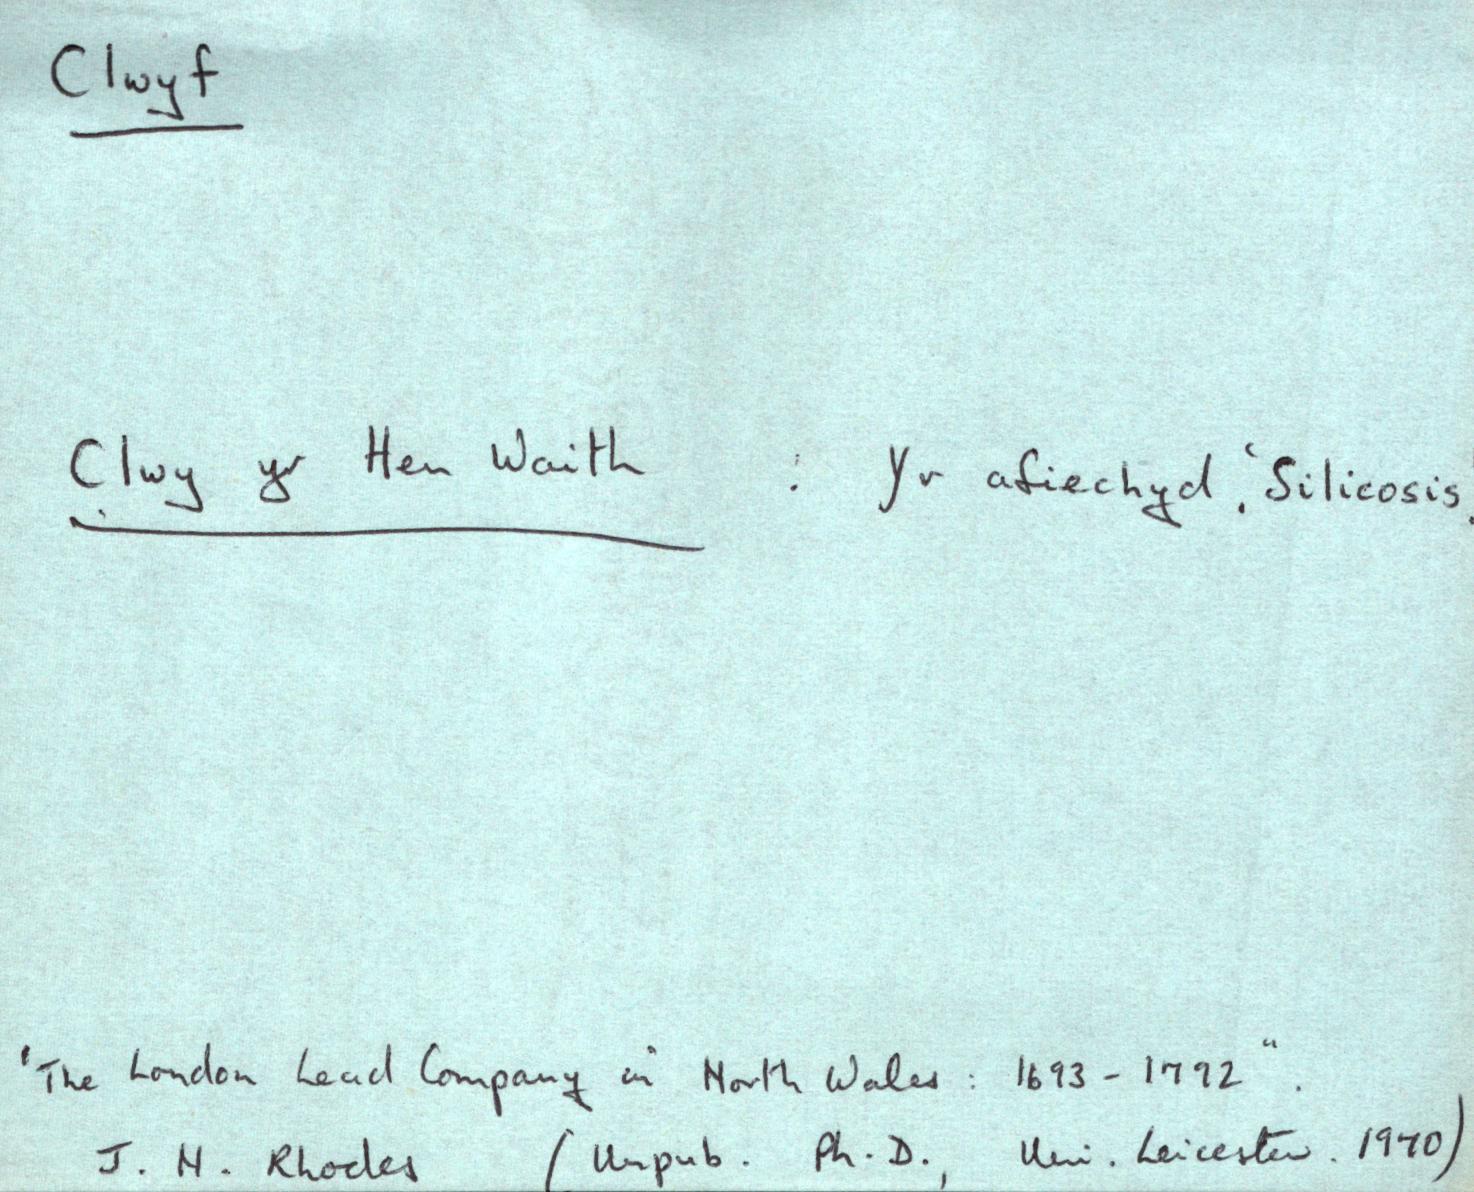 Clwyf
Clwy yr Hen Waith : Yr afiechyd, 'Silicosis.'
'The London Lead Company in North Wales : 1693 - 1792".
J. N. Rhodes (Unpub. Ph.D., Uni. Leicester. 1970)